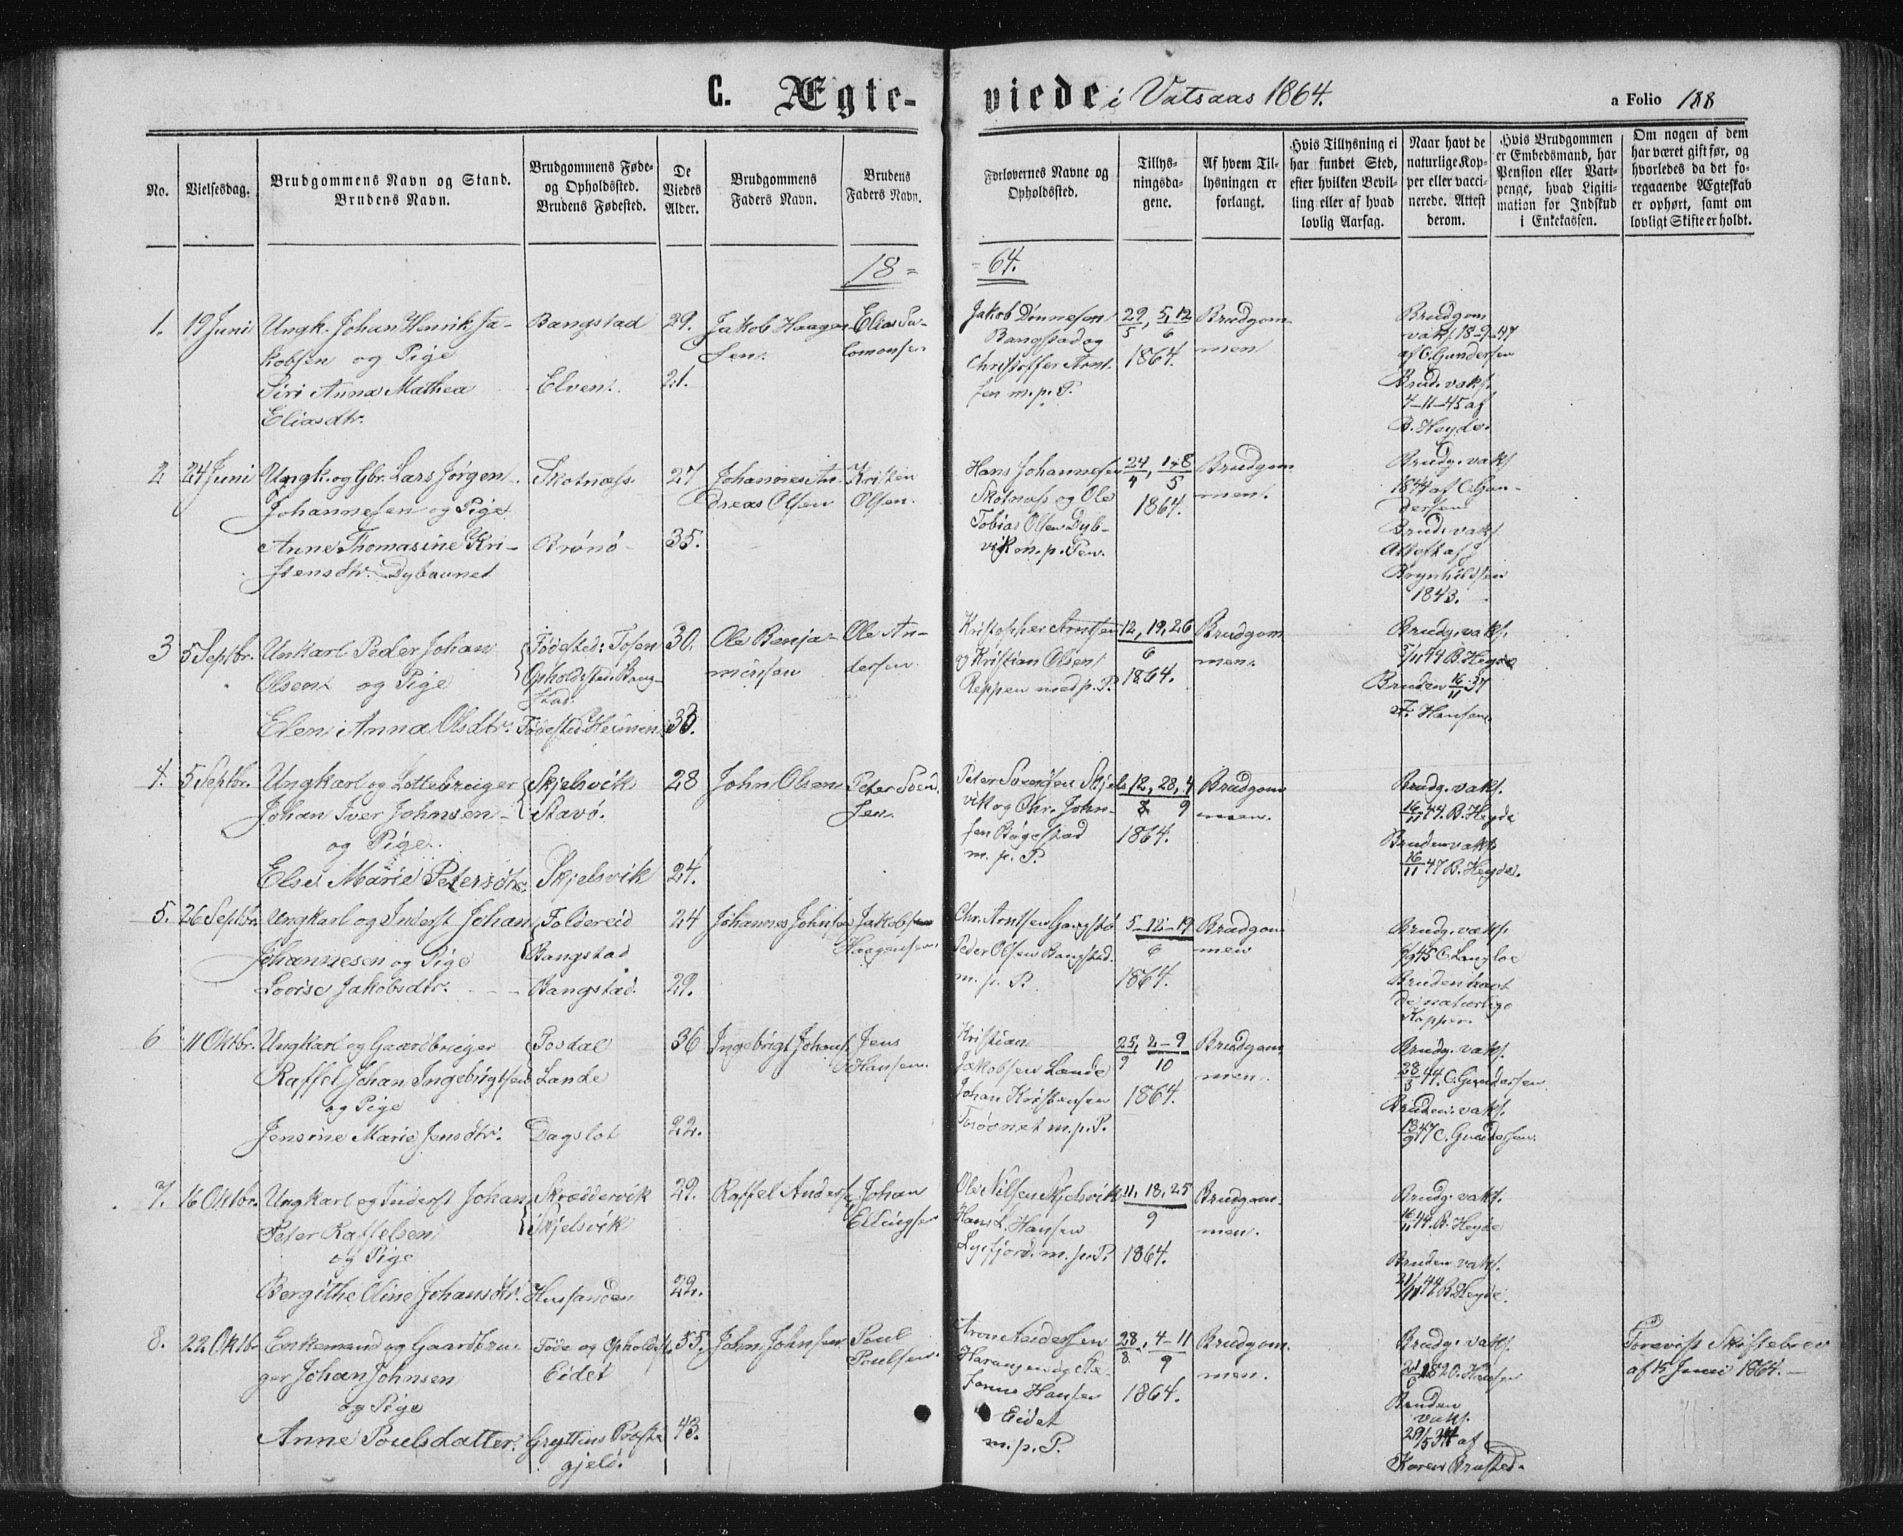 C. Ægte-
viede i Vatsaas 1864.
a Folio 188
No.
Vielsesdag.
Brudgommens Navn og Stand.
Brudens Navn.
Brudgommens Føde-
og Opholdssted.
Brudens Fødested.
De
Viedes
Alder.
Brudgommens
Faders Navn.
Brudens
Faders Navn.
Forlovernes Navne og
Opholdssted.
Tillys-
ningsda-
gene.
Af hvem Til-
lysningen er
forlangt.
Hvis Tillysning ei
har fundet Sted,
efter hvilken Bevil-
ling eller af hvad
lovlig Aarsag.
Naar havt de
naturlige Kop-
per eller vacci-
nerede. Attest
derom.
Hvis Brudgommen
er Embedsmand, har
Pension eller Vart-
penge, hvad Ligiti-
mation for Indskud
i Enkekassen.
Om nogen af dem
har været gift før, og
hvorledes da det fo-
regaaende Ægteskab
er ophørt, samt om
lovligt Skifte er holdt.
18 =
= 64.
1.
19 Juni
Ungk. Johan Henrik Ja-
kobsen og Pige
Siri Anna Mathea
Eliasdtr.
Bangstad
Elven.
29.
21.
Jakob Haagen
sen.
Elias Sa-
lomonsen
Jakob Dønnesen
Bangstad og
Christoffer Arnt-
sen m. p. P.
29, 5, 12
5 6
1864.
Brudgom-
men
Brudgom
vaks. 18-9-47
af C. Gundersen
Brud. vaks.
7-11-45 af
B. Heyde.
2
24 Juni
Ungk. og Gbr. Lars Jørgen
Johannesen og Pige
Anne Thomasine Kri-
stensdtr. Dybavnet
Skotnæss
Brønø
27
35.
Johannes An-
dreas Olsen
Kristen
Olsen.
Hans Johannesen
Skotnæss og Ole
Tobias Olsen Dyb-
vik m. p. Pen.
24, 1, 8
4 5
1864.
Brudgom
men.
Brudg. vaks.
1844 af C. Gun-
dersen
Brud. vaks.
Attest af
Brynhildsen
1843.
3
5 Septbr.
Unkarl Peder Johan
Olsen og Pige
Elen Anna Olsdtr.
Fødested: Tosen
Opholdsted: Bang-
stad.
Fødested Heimen
30.
Ole Benja-
minsen
Ole An-
dersen.
Kristopher Arntsen
og Kristian Olsen
Reppen med p. P.
12, 19, 26
6
1864.
Brudgom
men.
Brudg. vaks.
5/11 44 B. Heyde
Bruden 16/11 37
F. Hansen.
4.
5 Septbr.
Ungkarl og Lottebruger
Johan Iver Johnsen
og Pige
Else Marie Petersdtr.
Skjelsvik
Stavø.
Skjelsvik
28
24.
John Olsen
Peter Svend
sen.
Peter Svendsen Skjel
vik og Chr. John-
sen Bøgestad
m. p. P.
12, 28, 4
8 9
1864.
Brudgom
men.
Brudg. vaks.
16/11 44 B. Heyde
Bruden vaks
16/11 47 B. Heyde.
5.
26 Septbr.
Ungkarl og Inderst Johan
Johannesen og Pige
Lovise Jakobsdtr.
Foldereid
Bangstad
Bangstad.
24
29.
Johannes Johnsen
Jakob
Haagensen.
Chr. Arntsen Gangstø
Peder Olsen Bangstad.
m. p. P.
5-12-19
6
1864.
Brudgom
men
Brudg. vaks.
C. Langloe
Bruden havt
de naturlige
Kopper.
6
11 Oktbr.
Ungkarl og Gaardbruger
Raffel Johan Ingebrigtsen
og Pige
Jensine Marie Jensdtr.
Posdal
Lande
Dagslot
36
22.
Ingebrigt Johans.
Jens
Hansen.
Kristian
Jakobsen Lande
Johan Kristensen
m. p. P.
25, 2-9
9 10
1864.
Brudgom
men.
Brudg. vaks.
28/3 44. C. Gundersen
Bruden vaks.
47 C. Gundersen.
7.
16 Oktbr.
Ungkarl og Inderst Johan
Peter Raffelsen
og Pige
Bergithe Oline Johansdtr.
Skreddervik
Skjelsvik
Husanden
29.
22.
Raffel Anders.
Johan
Ellingsen
Ole Nilsen Skjelsvik
Hans L. Hansen
Lysfjord. m. p. P.
11, 18, 25
9
1864.
Brudgom
men.
Brudg. vaks.
16/11 44. B. Heyde
Bruden vaks.
21/11 44 B. Heyde.
8.
22 Oktb.
Enkemand og Gaardbru
ger Johan Johnsen
og Pige
Anne Poulsdatter.
Føde og Opholdst.
Eidet
Gryttens Præste
gjeld.
55.
43.
John Johnsen
Poul
Poulsen.
Aron Andersen
Harangen og Ste-
Hansen
Eidet
m. p. P.
28, 4-11
8. 9
1864.
Brudgom
men.
Brudg. vaks.
1820.
Bruden
vaks.
29/5 34 af
Karen Brusted.
Forevist Skiftebrev
af 15 Juni 1864.